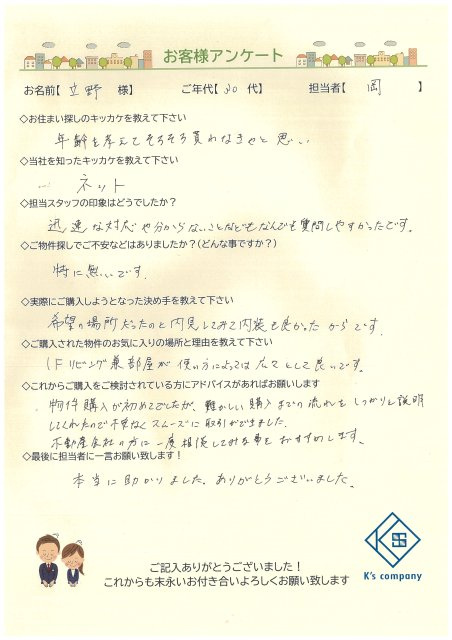 お客様アンケート
お名前【 立野 様】 ご年代【 30 代】 担当者【 岡 】
◇お住まい探しのキッカケを教えて下さい
年齢も考えてそろそろ買わなきゃと思い
◇当社を知ったキッカケを教えて下さい
ネット
◇担当スタッフの印象はどうでしたか?
迅速な対応や分からないことなどもなんでも質問しやすかったです。
◇ご物件探しでご不安などはありましたか?(どんな事ですか?)
特に無いです。
◇実際にご購入しようとなった決め手を教えて下さい
希望の場所だったのと内見してみて内装も良かったからです。
◇ご購入された物件のお気に入りの場所と理由を教えて下さい
1Fリビング兼部屋が使い方によっては広くとして良いです。
◇これからご購入をご検討されている方にアドバイスがあればお願いします
物件購入が初めてでしたが、難かしい購入までの流れもしっかりと説明
してくれたので不安なくスムーズに取引ができました。
不動産会社の方に一度相談してみる事をおすすめします。
◇最後に担当者に一言お願い致します!
本当に助かりました、ありがとうございました。
ご記入ありがとうございました!
これからも末永いお付き合いよろしくお願い致します
K's company